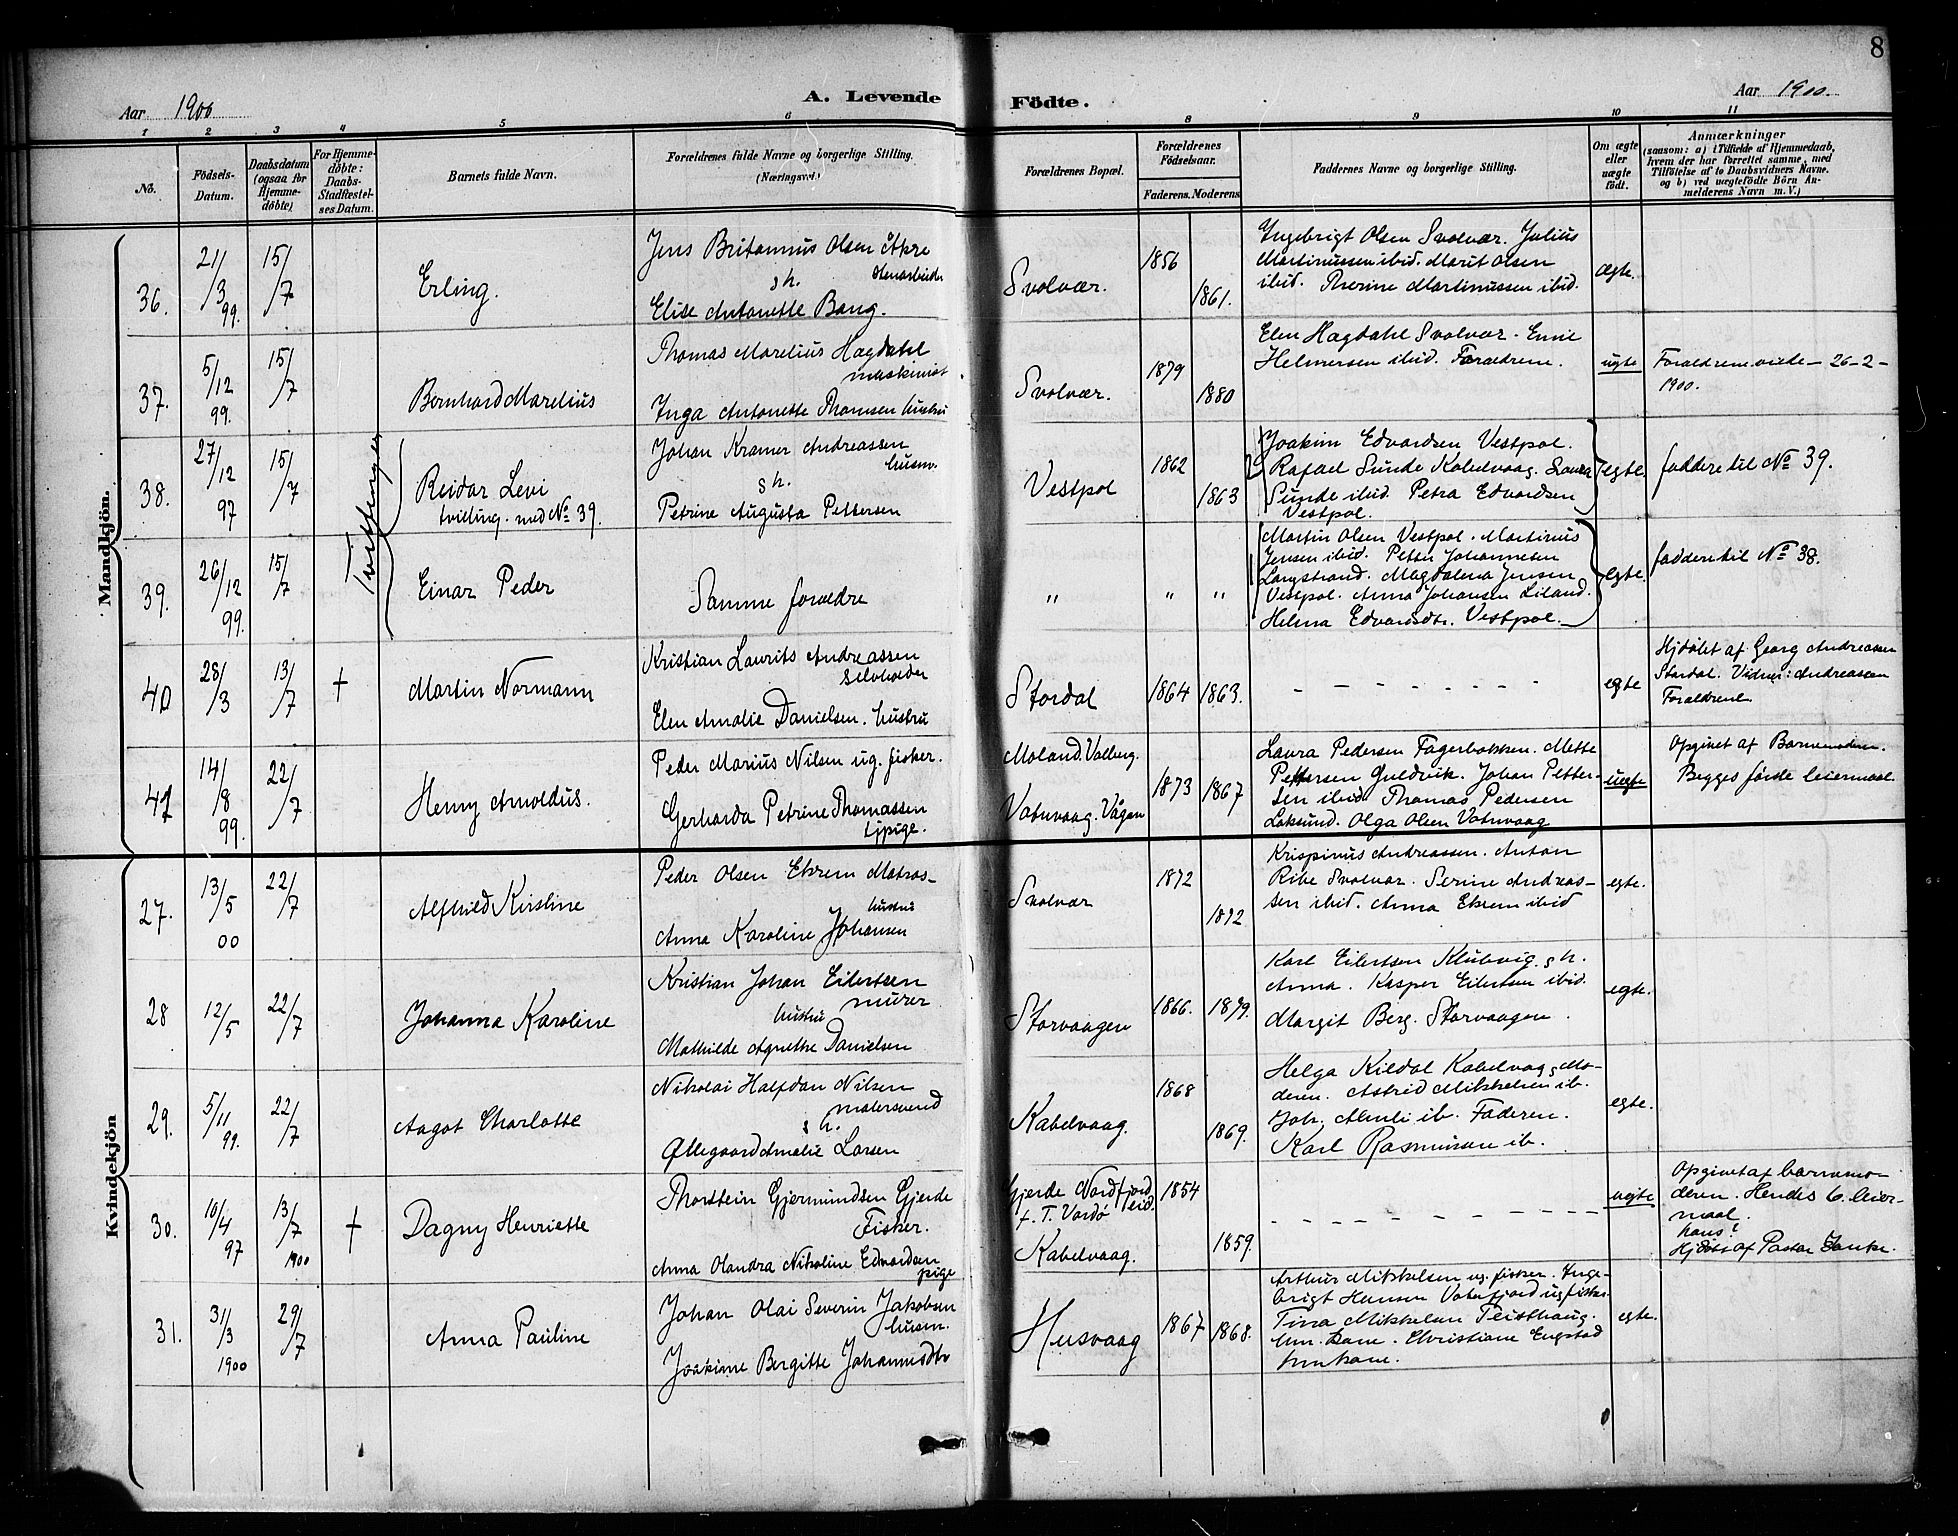 8
Aar 1900
A. Levende
Födte.
Aar 1900.
1 2 3 4 5 6 8 9 10 11
No.
Födsels-
Datum.
Daabsdatum
(ogsaa for
Hjemme-
döbte)
For Hjemme-
döbte:
Daabs-
Stadfæstel-
ses Datum.
Barnets fulde Navn.
Forældrenes fulde Navne og borgerlige Stilling.
(Næringsvei.)
Forældrenes Bopæl.
Forældrenes
Födselsaar.
Faderens. Moderens.
Faddernes Navne og borgerlige Stilling.
Om ægte
eller
uægte
födt.
Anmærkninger
(saasom: a) i Tilfælde af Hjemmedaab,
hvem der har forrettet samme, med
Tilföielse af to Daabsvidners Navne.
og b) ved uægtefödte Börn An-
melderens Navn m. V.)
Mandkjön.
36.
21/3 99.
15/7
Erling.
Jens Britannius Olsen
s h.
Elise Antonette Bang.
Svolvær.
1856
1861.
Ingebrigt Olsen Svolvær. Julius
Martinussen ibid. Marit Olsen
ibid. Therine Martinussen ibid.
ægte.
37.
5/12 99.
15/7
Bernhard Marelius
Thomas Marelius Hagdahl
maskinist
Inga Antonette Thomsen hustru
Svolvær.
1879
1880
Elen Hagdahl Svolvær. Emil
Helmersen ibid. Forældrene.
uegte
Forældrene viede - 26-2-
1900.
38.
27/12 97
15/7
Tvillinger
Reidar Levi
tvilling. med No 39.
Johan Kramer Andreassen
husm.
s h.
Petrine Augusta Pettersen
Vestpol
1862
1863
Joakim Edvardsen Vestpol.
Rafael Sunde Kabelvaag. Laura
Sunde ibid. Petra Edvardsen
Vestpol.
egte.
faddere til No 39.
39.
26/12 99.
15/7
Einar Peder
Samme forældre
" " "
Martin Olsen Vestpol. Martinus
Jensen ibid. Petter Johannesen
Langstrand. Magdalena Jensen
Vestpol. Anna Johansen Liland.
Helma Edvardsdtr. Vestpol.
egte.
faddere til No 38.
40
28/3
13/7
†
Martin Normann
Kristian Laurits Andreassen
selveier
Elen Amalie Danielsen. hustru
Stordal
1864
1863.
- - - - - - - -
egte
Hjdöbt af Georg Andreassen
Stordal. Vidner: Andreassen
Forældrene
41
14/8 99.
22/7
Henry Arnoldus.
Peder Marius Nilsen ug. fisker.
Gerharda Petrine Thomassen
tjpige.
Moland. Valberg.
Vatnvaag. Vågan
1873
1867
Laura Pedersen Fagerbakken. Mette
Pettersen Guldvik. Johan Petter-
sen ibid. Thomas Pedersen
Laksund. Olga Olsen Vatnvaag
uegte
Opgivet af Barnemoderen.
Begges første leiermaal
Kvindekjön
27.
13/5 00
22/7
Alfhild Kirstine
Peder Olsen Ekrem Matros-
hustru
Anna Karoline Johansen
Svolvær
1872
1872
Krispinus Andreassen. Anton
Ribe Svolvær. Serine Andreas-
sen ibid. Anna Ekrem ibid
egte.
28
12/5
22/7
Johanna Karoline
Kristian Johan Eilertsen
murer
hustru
Mathilde Agnethe Danielsen
Storvaagen
1866.
1879.
Karl Eilertsen Klubvig. s h.
Anna. Kasper Eilertsen ibid.
Margit Berg. Storvaagen.
egte.
29.
5/11 99.
22/7
Aagot Charlotte
Nikolai Halfdan Nilsen
malersvend
s h.
Øllegaard Amalie Larsen
Kabelvaag.
1868
1869.
Helga Kildal Kabelvaag, Mo-
deren. Astrid Mikkelsen ib.
Joh. Almli ib. Faderen.
Karl Rasmussen ib.
egte.
30.
10/4 97
13/7 1900
†
Dagny Henriette
Thorstein Gjermundsen Gjerde
Fisker.
Anna Olandra Nikoline Edvardsen
pige
Gjerde Nordfjord
eid.
f. T. Vardø
Kabelvaag.
1854
1859.
- - - - - - - -
uegte
Opgivet af barnemo-
deren. Hendes 6. leier-
maal.
hans?
Hjdöbt af Pastor
31.
31/3 1900
29/7
Anna Pauline
Johan Olai Severin Jakobsen
husm.
Joakime Bergitte Johannesdtr
Husvaag
1867
1868.
Arthur Mikkelsen ug. fisker. Inge-
brigt Hansen Vaterfjord ug fisker
Tina Mikkelsen Teisthaug.
hm. kone. Christiane Engstad
hm kone.
egte.